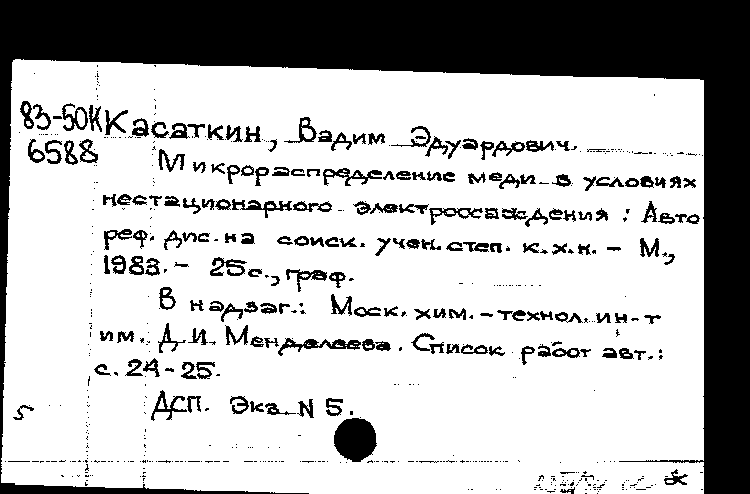 83-50К Касаткин, Вадим Эдуардович.
6588
Микрораспределение меди в условиях
нестационарного электроосаждения : Авто
реф. дис. на соиск. учен. степ. к.х.н. - М.,
1983. - 25 с., граф.
В надзаг.: Моск. хим.-технол. ин-т
им. Д. И. Менделеева. Список работ авт.:
с. 24-25.
ДСП. Экз. N 5.
5